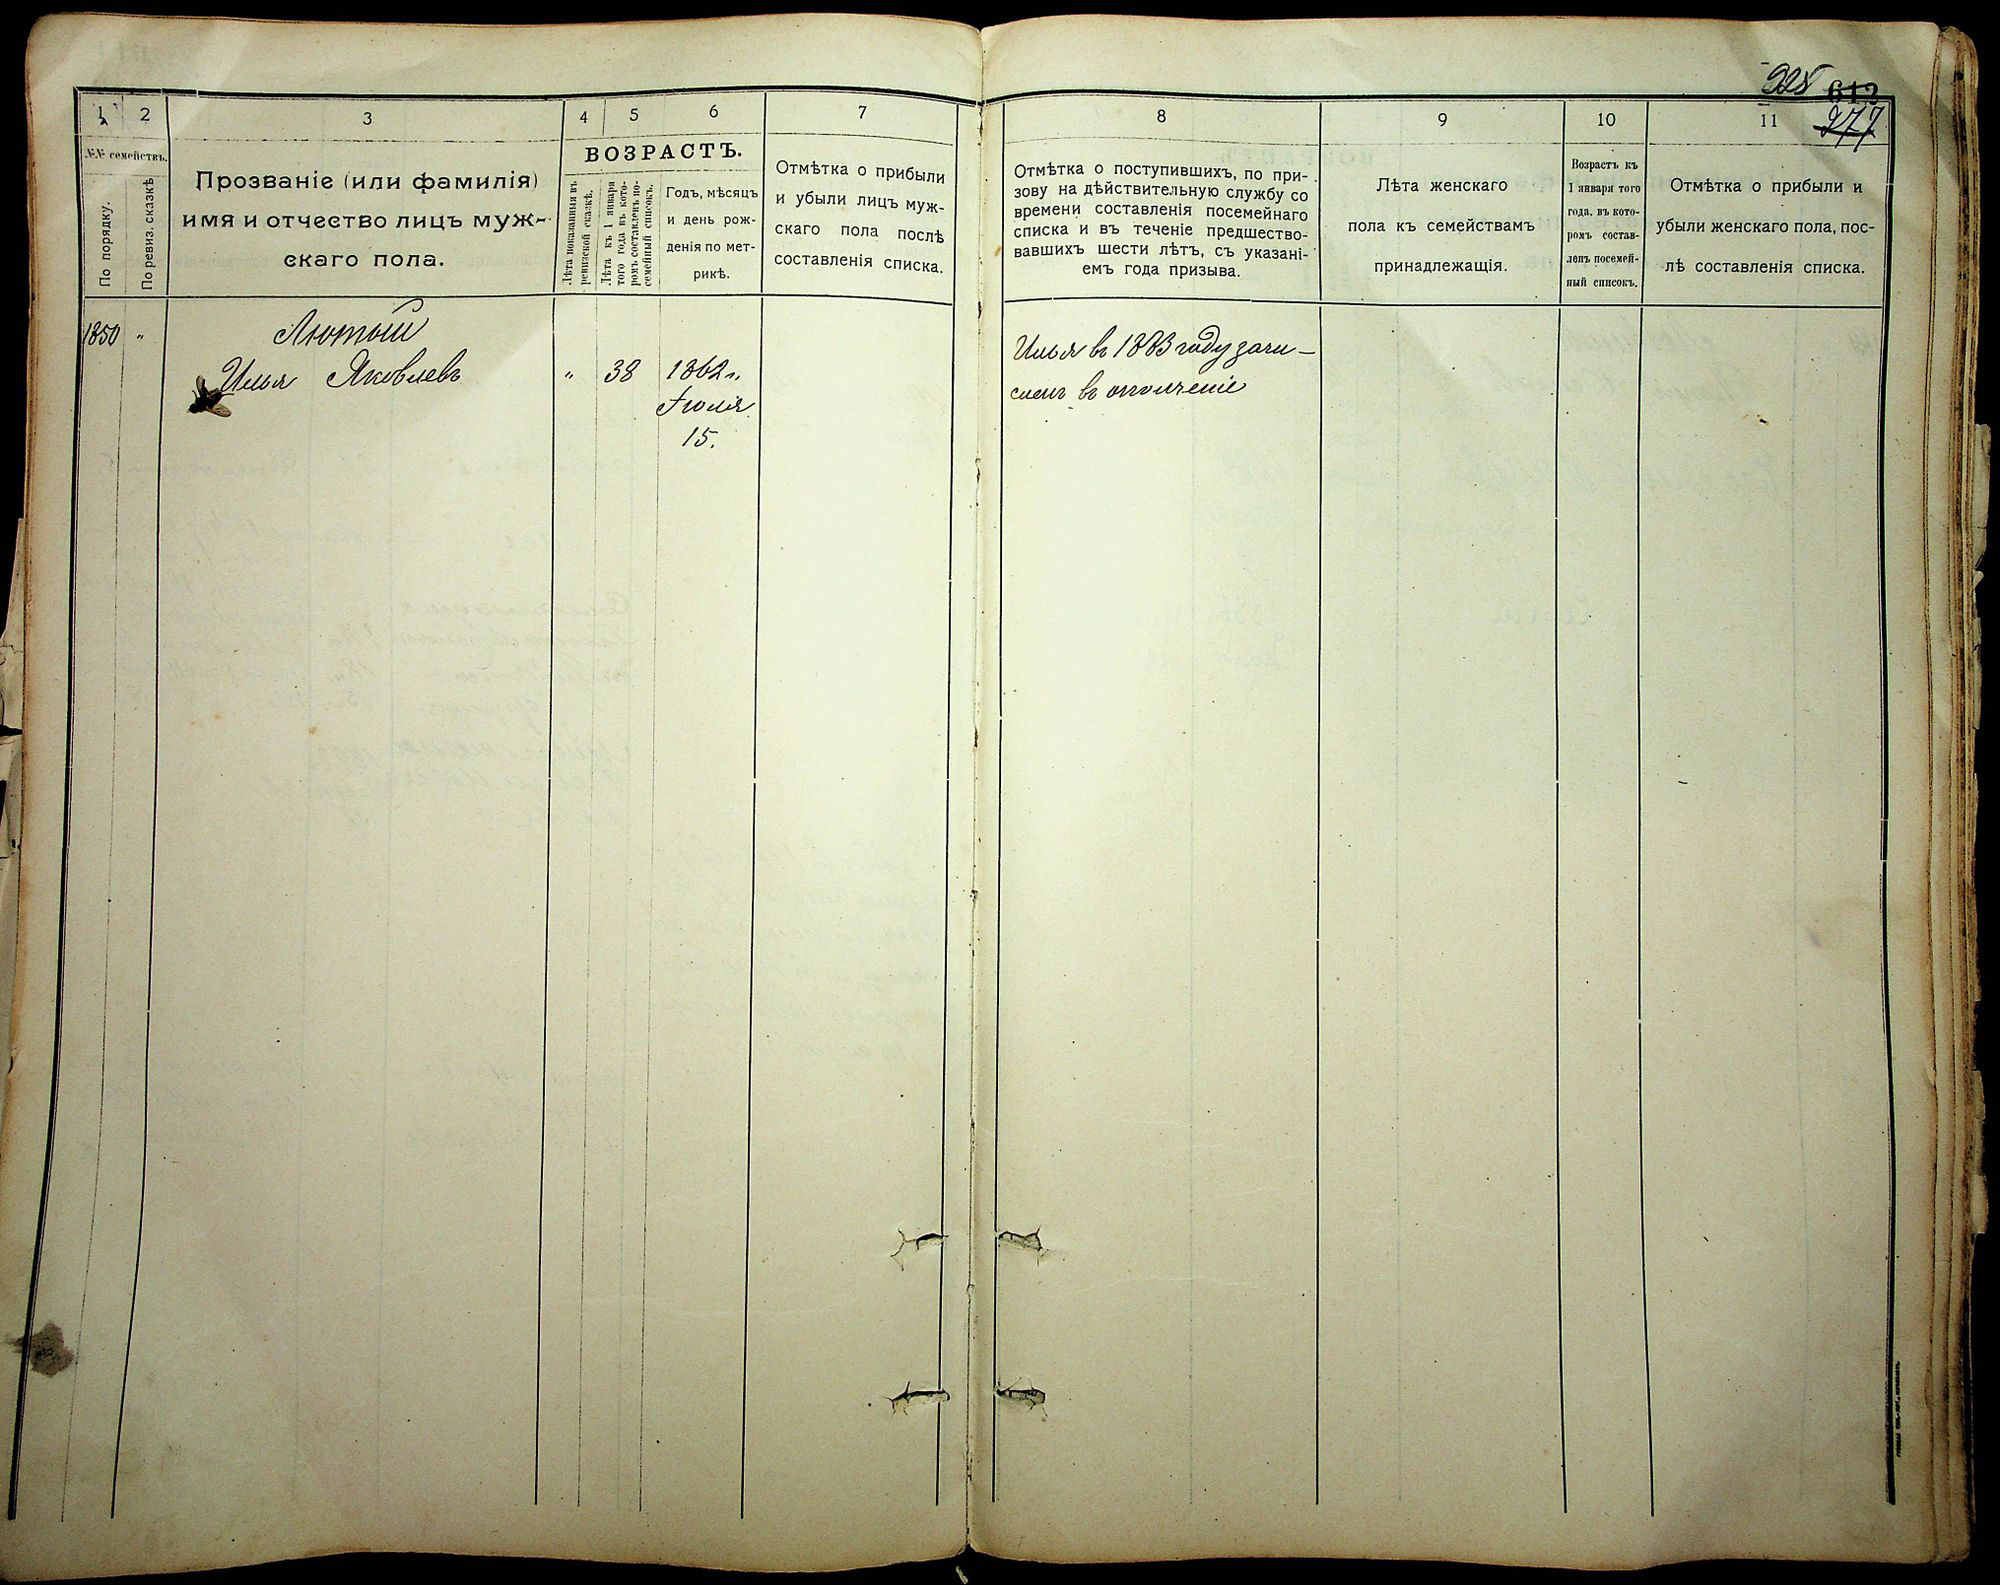 928 613
277
1 2 3 4 5 6 7 8 9 10 11
№№ семействъ.
По порядку.
По ревиз. сказкѣ
Прозваніе (или фамилія)
имя и отчество лицъ муж-
скаго пола.
ВОЗРАСТЪ.
Лѣта показанныя въ
ревизской сказкѣ.
Лѣта къ 1 января
того года въ кото-
ромъ составленъ по-
семейный списокъ.
Годъ, мѣсяцъ
и день рож-
денія по мет-
рикѣ.
Отмѣтка о прибыли
и убыли лицъ муж-
скаго пола послѣ
составленія списка.
Отмѣтка о поступившихъ, по при-
зову на дѣйствительную службу со
времени составленія посемейнаго
списка и въ теченіе предшество-
вавшихъ шести лѣтъ, съ указані-
емъ года призыва.
Лѣта женскаго
пола къ семействамъ
принадлежащія.
Возрастъ къ
1 января того
года, въ кото-
ромъ состав-
ленъ посемей-
ный списокъ.
Отмѣтка о прибыли и
убыли женскаго пола, пос-
лѣ составленія списка.
1850 " Лютый
Илья Яковлевъ " 38 1862 г.
Іюля
15.
Илья въ 1883 году зачи-
сленъ въ ополченіе